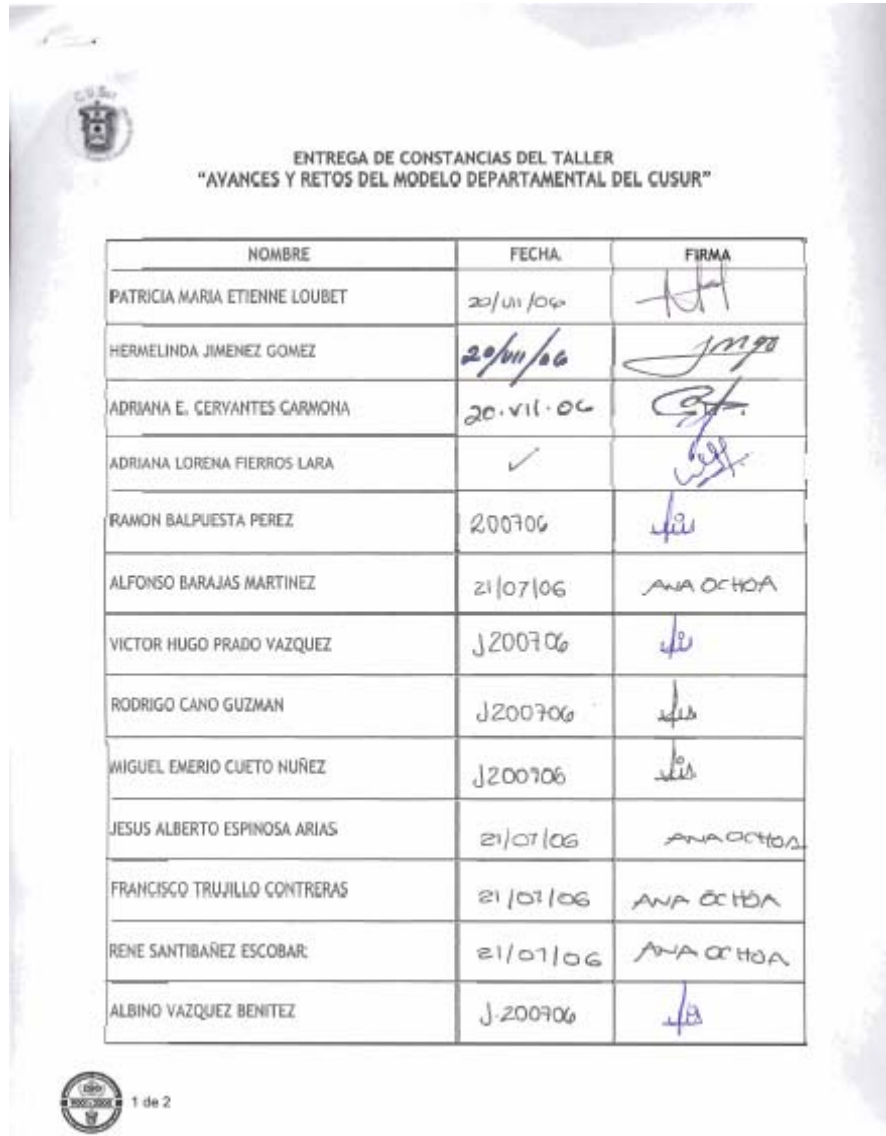 C.U.Sur
ENTREGA DE CONSTANCIAS DEL TALLER
"AVANCES Y RETOS DEL MODELO DEPARTAMENTAL DEL CUSUR"
NOMBRE FECHA FIRMA
PATRICIA MARIA ETIENNE LOUBET 20/VII/06
HERMELINDA JIMENEZ GOMEZ 20/VII/06
ADRIANA E. CERVANTES CARMONA 20.VII.06
ADRIANA LORENA FIERROS LARA ✓
RAMON BALPUESTA PEREZ 200706
ALFONSO BARAJAS MARTINEZ 21/07/06 ANA OCHOA
VICTOR HUGO PRADO VAZQUEZ J200706
RODRIGO CANO GUZMAN J200706
MIGUEL EMERIO CUETO NUÑEZ J200706
JESUS ALBERTO ESPINOSA ARIAS 21/07/06 ANA OCHOA
FRANCISCO TRUJILLO CONTRERAS 21/07/06 ANA OCHOA
RENE SANTIBAÑEZ ESCOBAR 21/07/06 ANA OCHOA
ALBINO VAZQUEZ BENITEZ J.200706
1 de 2